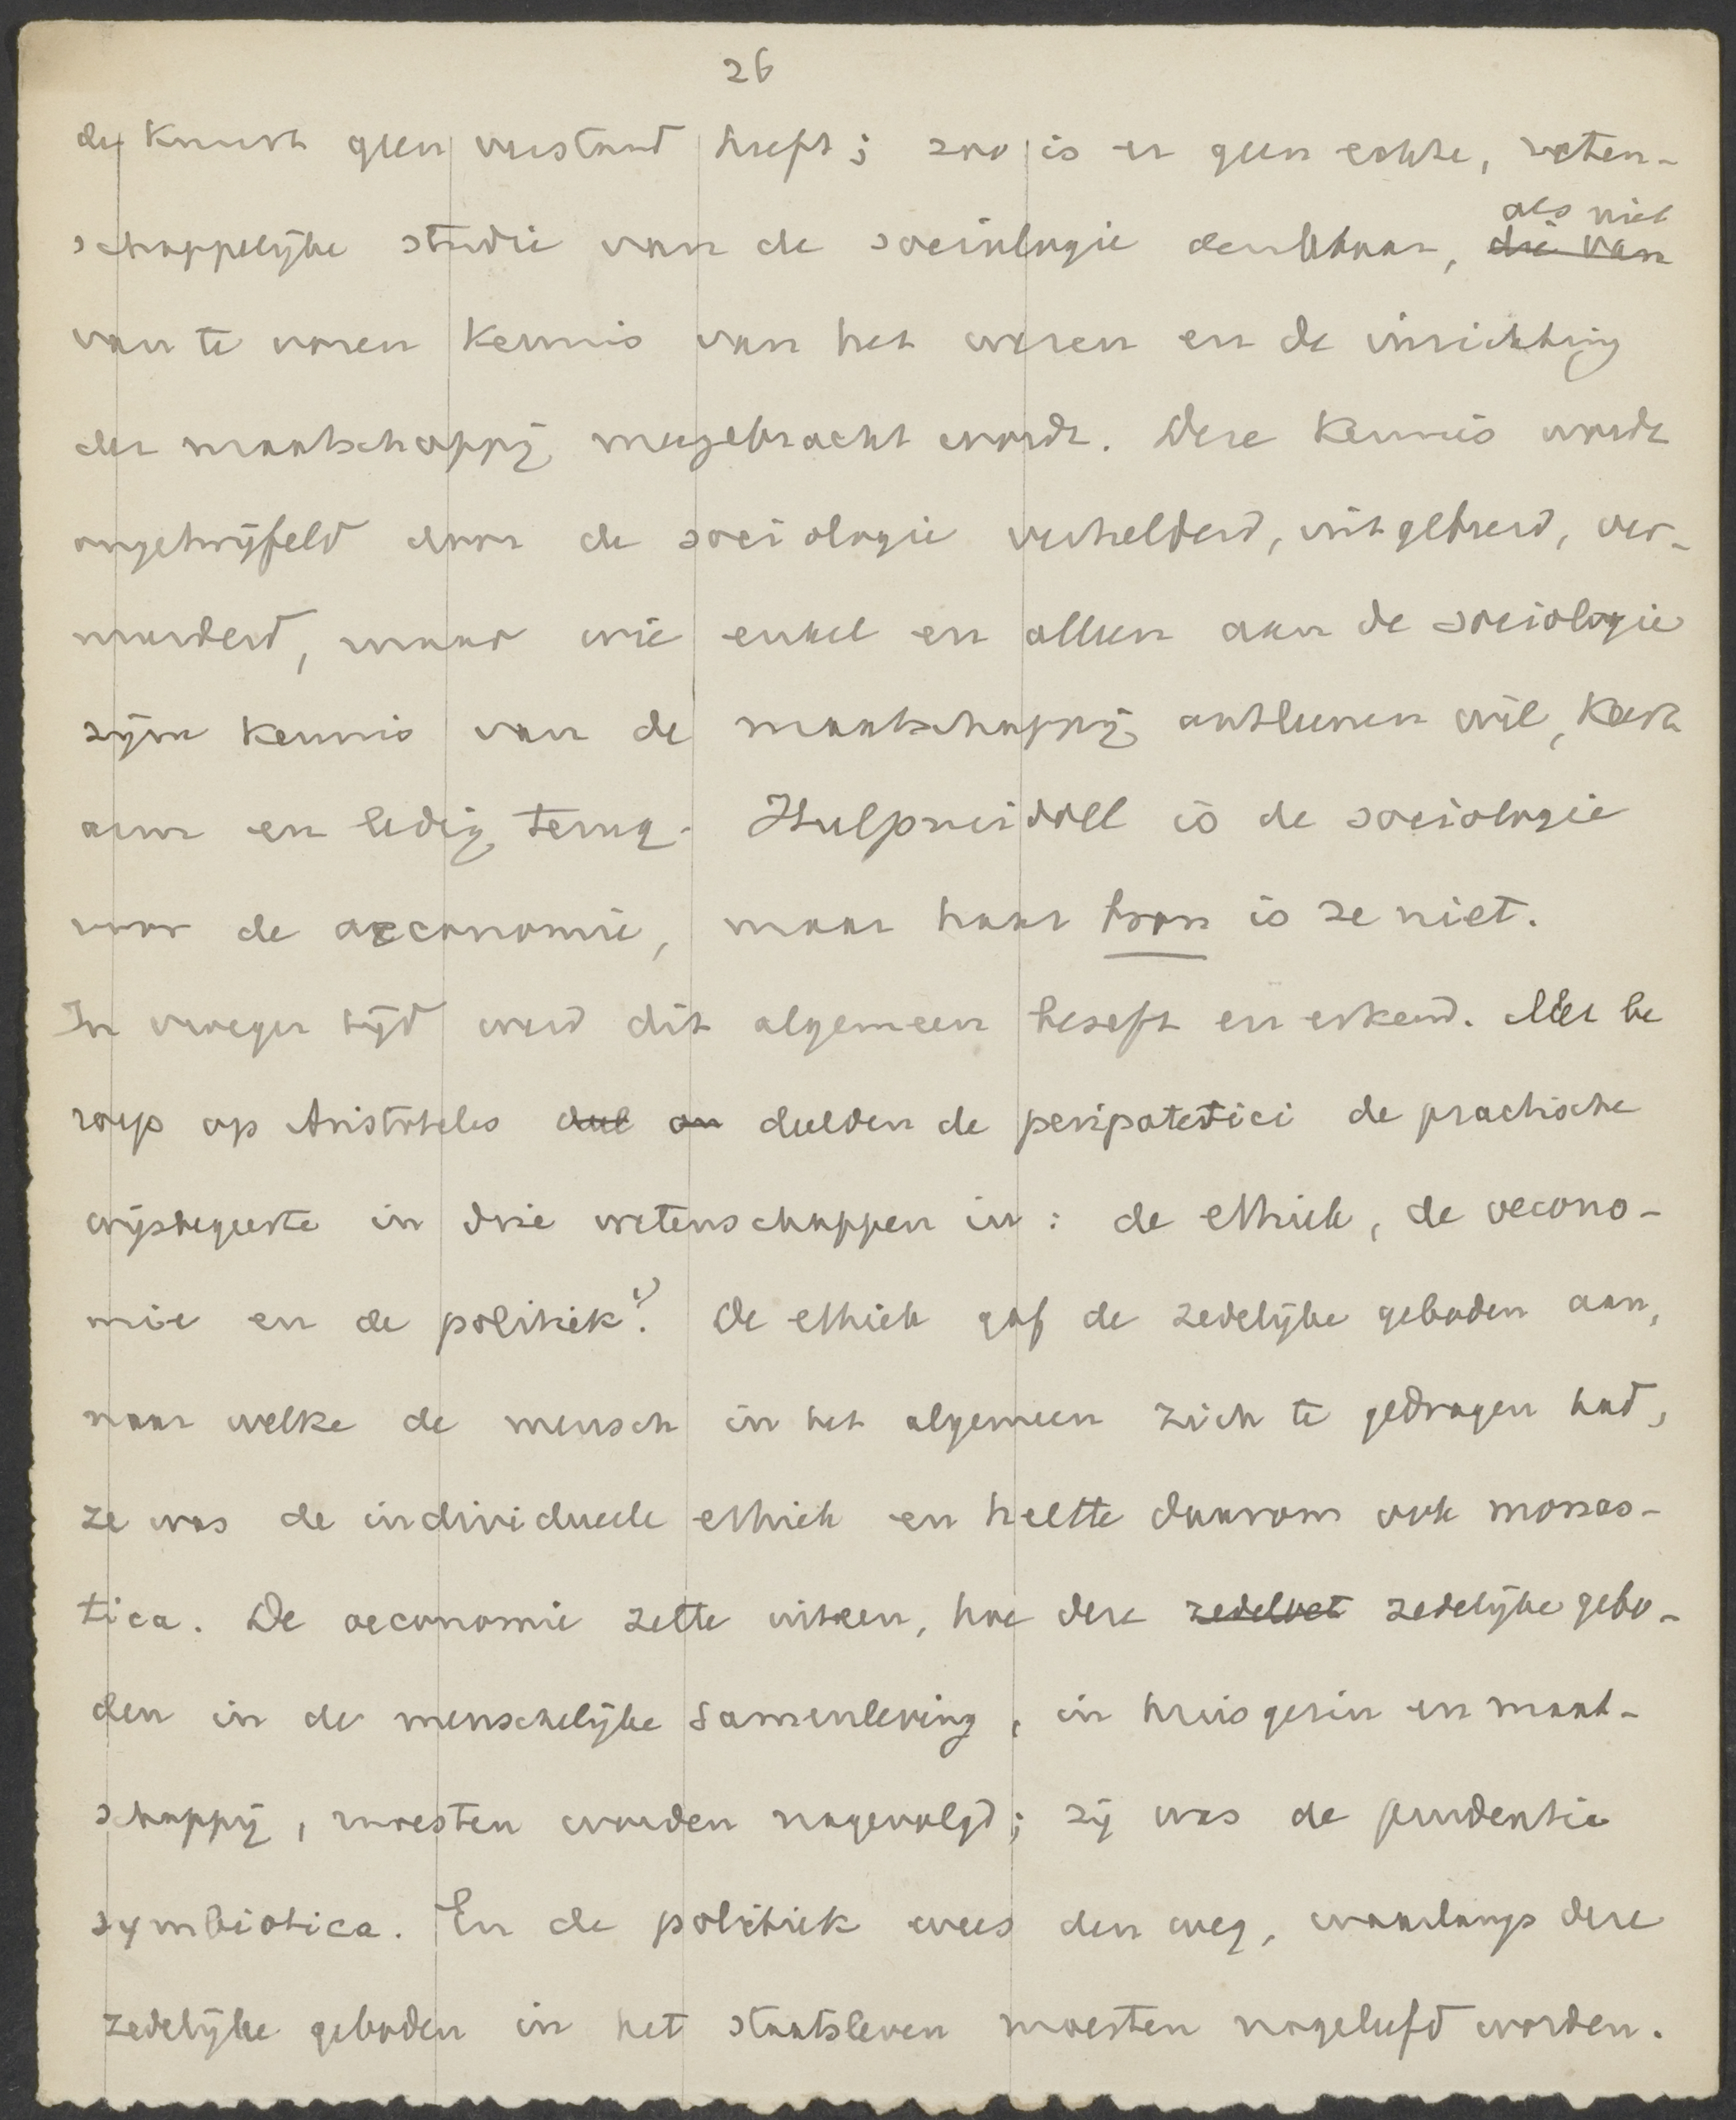 26
der kunst geen verstand heeft; zoo is er geen echte, weten-
schappelijke studie van de sociologie denkbaar, die van als niet
van te voren kennis van het wezen en de inrichting
der maatschappij meegebracht wordt. Deze kennis wordt
ongetwijfeld door de sociologie verhelderd, uitgebreid, ver-
meerderd, maar wie enkel en alleen aan de sociologie
zijn kennis van de maatschappij ontleenen wil, keert
arm en ledig terug. Hulpmiddel is de sociologie
voor de oeconomie, maar haar bron is ze niet.
In vroeger tijd werd dit algemeen beseft en erkend. Met be
roep op Aristoteles deel on deelden de peripatetici de practische
wijsbegeerte in drie wetenschappen in: de ethiek, de oecono-
mie en de politiek. 1) De ethiek gaf de zedelijke geboden aan,
naar welke de mensch in het algemeen zich te gedragen had,
ze was de individueele ethiek en heette daarom ook monas-
tica. De oeconomie zette uiteen, hoe deze zedelwet zedelijke gebo-
den in de menschelijke samenleving, in huisgezin en maat-
schappij, moesten worden nagevolgd; zij was de prudentia
symbiotica. En de politiek wees den weg, waarlangs deze
zedelijke geboden in het staatsleven moesten nageleefd worden.